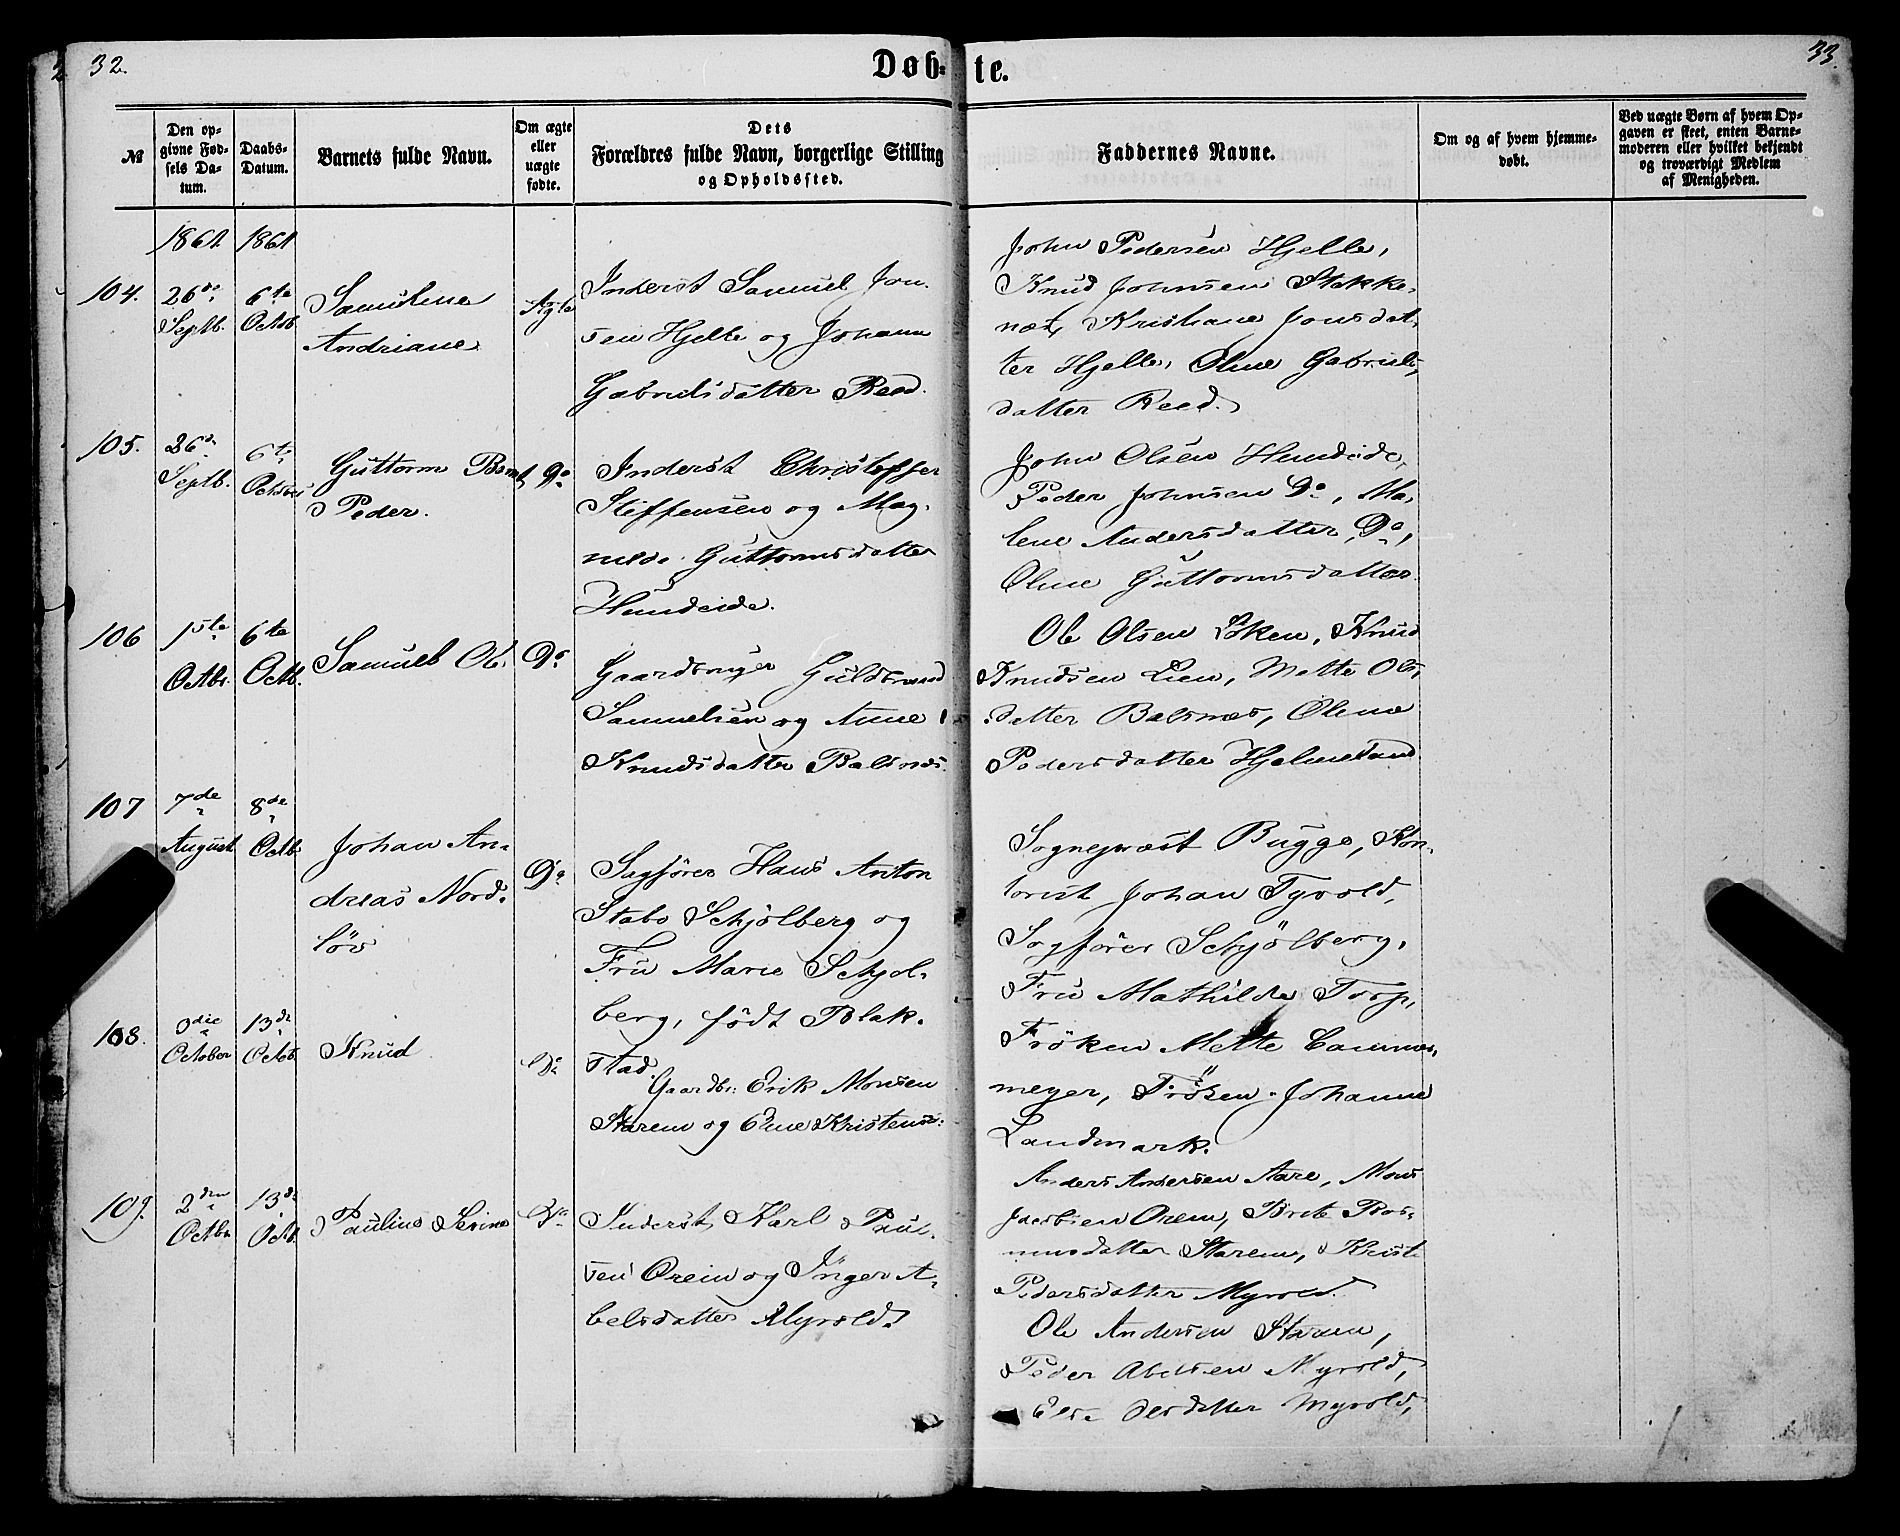 32.
Døb-
te.
33.
№
Den op-
givne Fød-
sels Da-
tum.
Daabs-
Datum.
Barnets fulde Navn.
Om ægte
eller
uægte
fødte.
Dets
Forældres fulde Navn, borgerlige Stilling
og Opholdssted.
Faddernes Navne.
Om og af hvem hjemme-
døbt.
Ved uægte Børn af hvem Op-
gaven er skeet, enten Barne-
moderen eller hvilket bekjendt
og troværdigt Medlem
af Menigheden.
1861 1861
104.
26de
Septb.
6te
Octob
Samuline
Andriane
Ægte
Inderst Samuel Jon-
sen Hjelle og Johann
Gabrielsdatter Reed.
John Pedersen Hjelle,
Knud Johnsen Stakke-
næs, Kristiane Jonsdat-
ter Hjelle, Oline Gabriels-
datter Reed.
105.
26de
Septb.
6te
Octobr
Guttorm Bernt
Peder.
Do
Inderst Christoffer
Steffensen og Mag-
nilde Guttormsdatter
Hundeide.
John Olsen Hundeide,
Peder Johnsen Do, Ma-
lene Andersdatter Do,
Oline Guttormsdatter
106
1ste
Octbr.
6te
Octb.
Samuel Ole
Do
Gaardbruger Guldbrand
Samuelsen og Anne
Knudsdatter Balsnæs.
Ole Olsen Løken, Knud
Knudsen Lien, Mette Ols-
datter Balsnæs, Oline
Pedersdatter Hjelmeland
107
7de
August
8de
Octb
Johan An-
dreas Nord-
löv
Do
Sagfører Hans Anton
Stabo Schjølberg og
Fru Marie Schjøl-
berg, født Blak-
stad.
Sognepræst Bugge, Kon-
torist Johan Tyvold,
Sagfører Schjölberg,
Fru Mathilde Torp,
Fröken Mette Cammer-
meyer, Fröken Johanne
Landmark.
108.
3die
October
13de
Octob
Knud
Do
Gaardbr: Erik Monsen
Starem og Eline Kristensd:
Anders Andersen Aare, Mons
Jacobsen Orem, Brite Ras-
musdatter Starem, Kristi
Pedersdatter Myrold.
109.
2den
Octbr
13de
Octb.
Pauline Severine
Do
Inderst Karl Paul-
sen Orem og Inger A-
belsdatter Myrold.
Ole Andersen Starem,
Peder Abelsen Myrold,
Else datter Myrold,